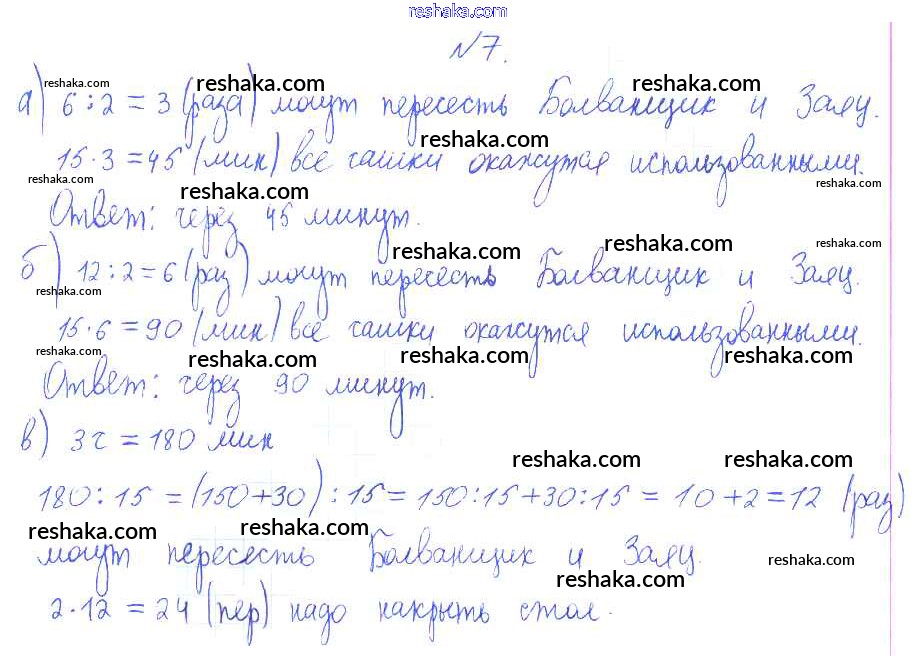 reshaka.com
№7.
reshaka.com reshaka.com reshaka.com
а) 6 : 2 = 3 (раза) могут пересесть Болванщик и Заяц.
reshaka.com
15 · 3 = 45 (мин) все чашки окажутся использованными.
reshaka.com reshaka.com reshaka.com
Ответ: через 45 минут.
reshaka.com reshaka.com reshaka.com
б) 12 : 2 = 6 (раз) могут пересесть Болванщик и Заяц.
reshaka.com
15 · 6 = 90 (мин) все чашки окажутся использованными.
reshaka.com reshaka.com reshaka.com reshaka.com
Ответ: через 90 минут.
в) 3 ч = 180 мин
reshaka.com reshaka.com
180 : 15 = (150 + 30) : 15 = 150 : 15 + 30 : 15 = 10 + 2 = 12 (раз)
reshaka.com reshaka.com
могут пересесть Болванщик и Заяц.
reshaka.com reshaka.com
2 · 12 = 24 (пер) надо накрыть стол.